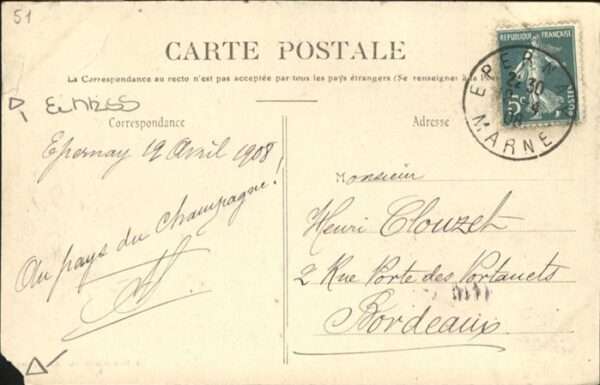 51
CARTE POSTALE
La Correspondance au recto n'est pas acceptée par tous les pays étrangers (Se renseigner à la
Correspondance
Adresse
REPUBLIQUE FRANÇAISE
5c
POSTES
EPERN
2-30
MARNE
Epernay 19 Avril 1908
Au pays du Champagne!
Monsieur
Henri Clouzet
2 Rue Porte des Portanets
Bordeaux